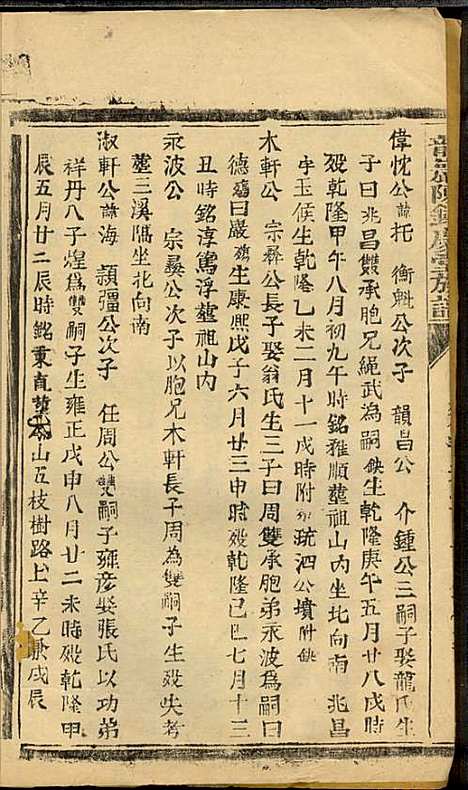 偉忱公諱托 衡魁公次子 韻昌公 介鍾公三嗣子娶龍氏生
子曰兆昌雙承胞兄繩武為嗣缺生乾隆庚午五月廿八戌時
殁乾隆甲午八月初九午時銘雅順塟祖山內坐北向南 兆昌
字玉候生乾隆乙未二月十一戌時附 疏泗公墳附缺
木軒公 宗彞公長子娶翁氏生三子曰周雙承胞弟永波為嗣曰
德殤曰嚴殤生康熙戊子六月廿三申時殁乾隆己巳七月十三
丑時銘淳篤浮塟祖山內
永波公 宗彞公次子以胞兄木軒長子周為雙嗣子生殁失考
塟三溪隔坐北向南
淑軒公諱海 頴彊公次子 任周公雙嗣子雍彦娶張氏以功弟
祥丹八子煌為雙嗣子生雍正戊申八月廿二未時殁乾隆甲
辰五月廿二辰時銘秉直塟 山五枝樹路上辛乙兼戌辰